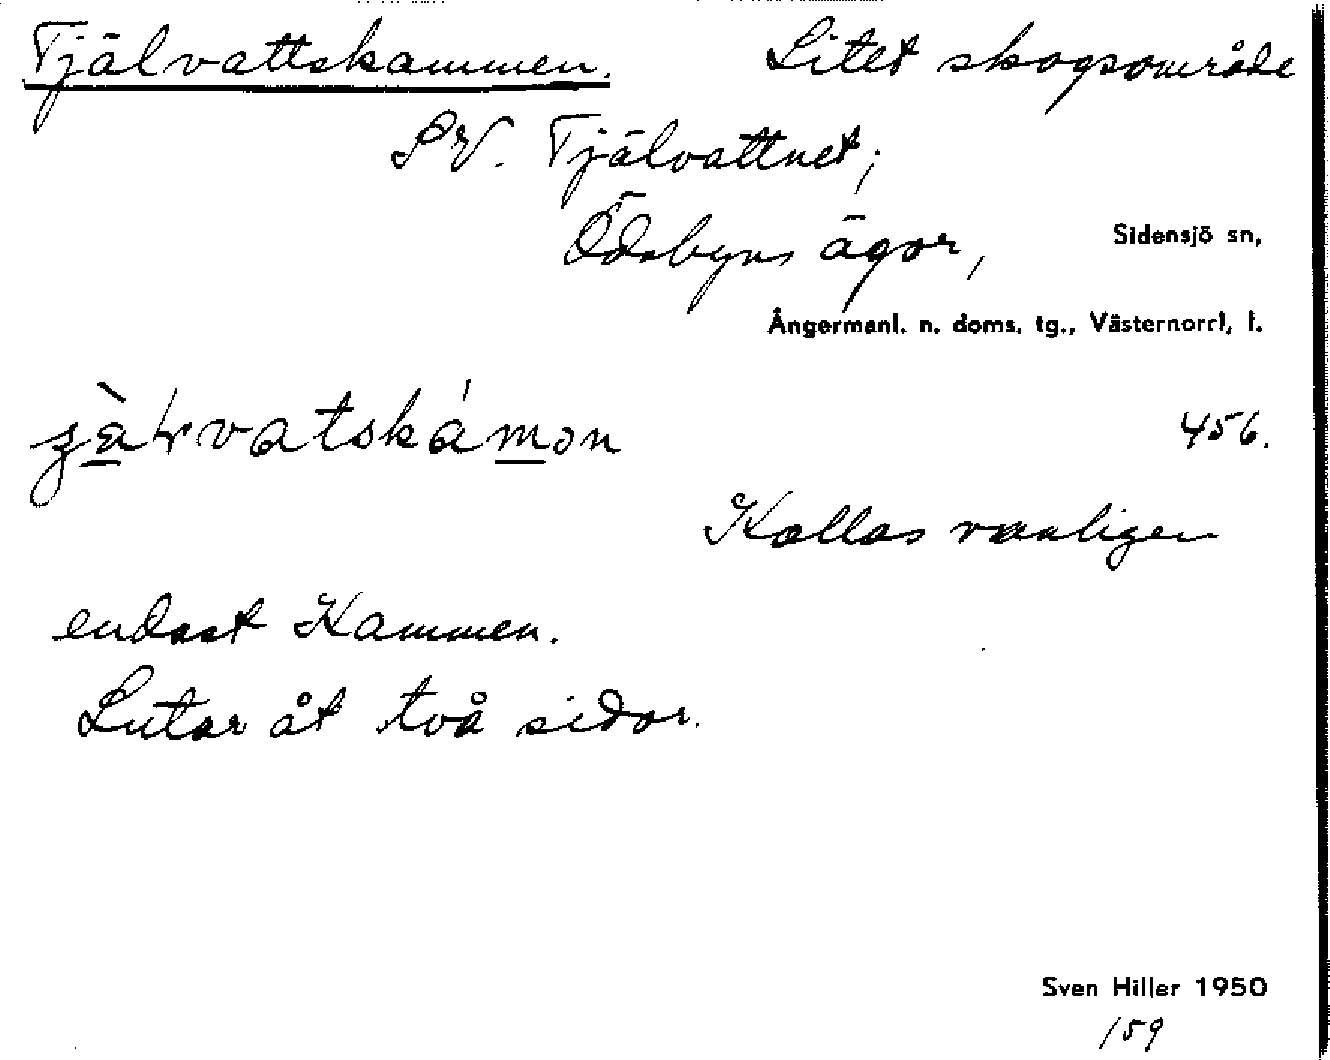 Tjälvattskammen. Litet skogsområde
SV. Tjälvattnet;
Ödsbyns ägor, Sidensjö sn,
Ångermanl. n. doms. tg., Västernorrl. l.
456.
Kallas vanligen
endast Kammen.
Lutar åt två sidor.
Sven Hiller 1950
159